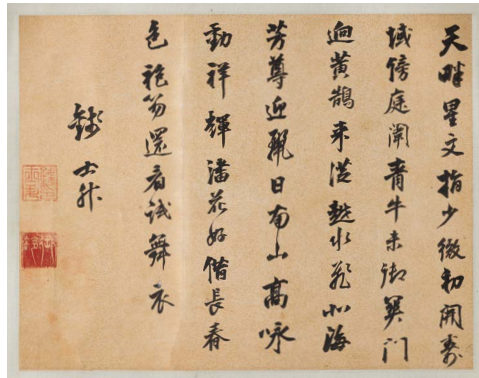 天畔星文指少微初開壽
域傍庭闈青牛未御吳門
迥黃鵠來從越水飛北海
芳尊迎麗日南山高詠
動祥輝潘花好借長春
色袍笏還看試舞衣
錢士升